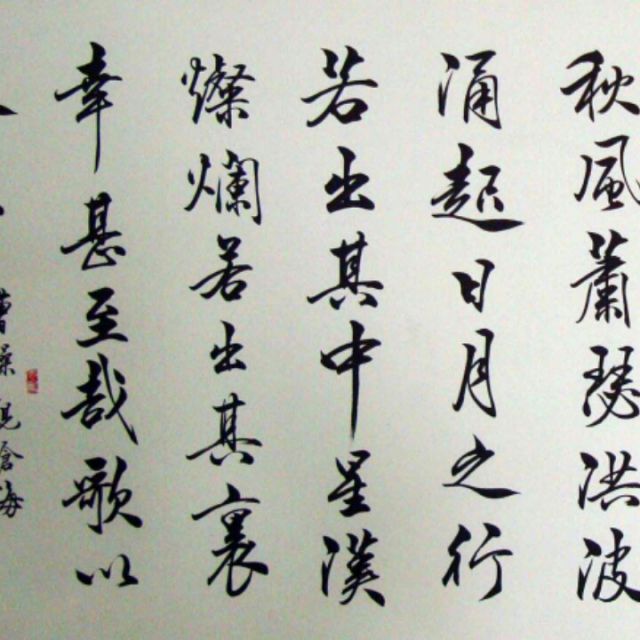 秋風蕭瑟洪波
涌起日月之行
若出其中星漢
燦爛若出其裏
幸甚至哉歌以
曹操觀滄海